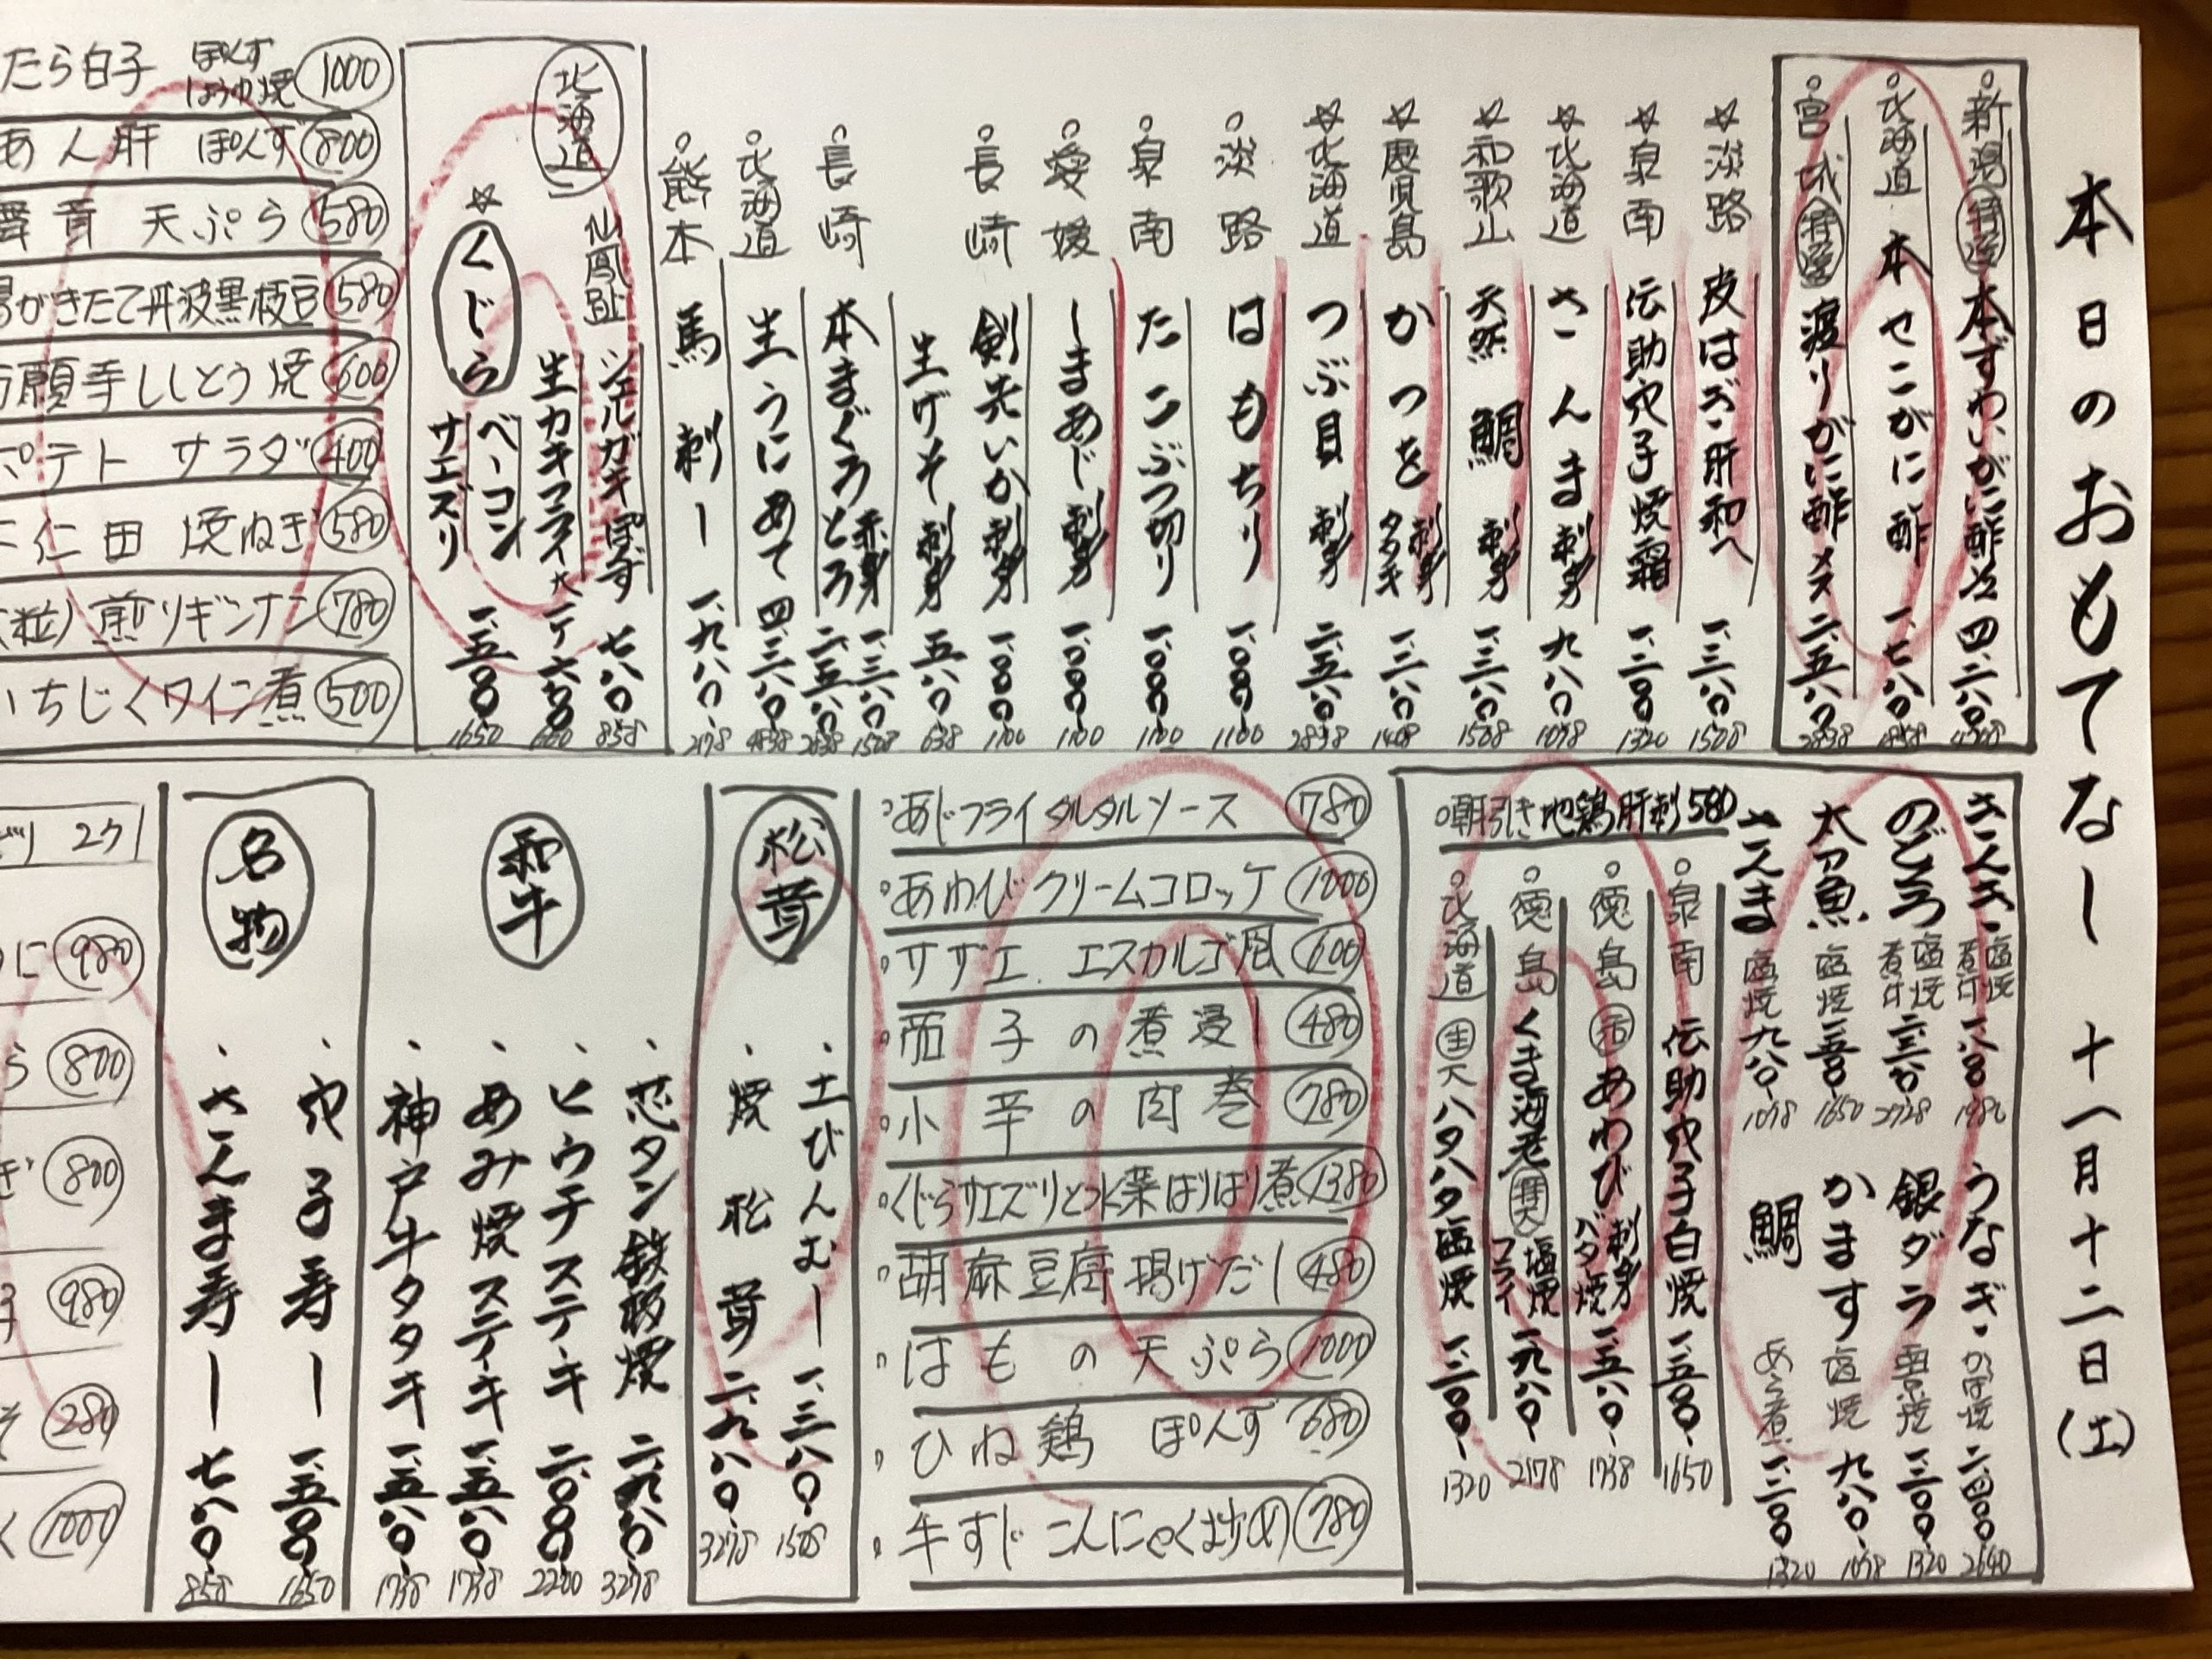 本日のおもてなし 十一月十二日(土)
新潟 特選 本ずわいがに酢 四、二八〇 4708
北海道 本せこがに酢 一、七八〇
宮城 特選 渡りがに酢 メス 二、五八〇 2838
☆淡路 皮はぎ肝和へ 一、三八〇 1508
☆泉南 伝助穴子焼霜 一、二〇〇 1320
☆北海道 さんま 刺身 九八〇 1078
☆和歌山 天然鯛 刺身 一、三八〇 1508
☆鹿児島 かつを 刺身 タタキ 一、二八〇 1408
☆北海道 つぶ貝 刺身 二、五八〇 2838
淡路 はもちり 一、〇〇〇 1100
泉南 たこぶつ切り 一、〇〇〇 1100
愛媛 しまあじ 刺身 一、〇〇〇 1100
長崎 剣先いか 刺身 一、〇〇〇 1100
生げそ 刺身 五八〇 638
長崎 本まぐろ 赤身 一、三八〇 1508
とろ 二、五八〇 2838
北海道 生うにあて 四、三八〇
熊本 馬刺し 一、九八〇 2178
北海道 仙鳳趾
シェルガキ ぽんず 七八〇 858
生カキフライ 大 一ケ 六〇〇 660
☆くじら
ベーコン
サエズリ
一、五〇〇 1650
たら白子 ぽんず しょうゆ焼 1000
あん肝 ぽんず 800
舞茸 天ぷら 580
湯がきたて丹波黒枝豆 580
万願寺ししとう焼 600
ポテト サラダ 400
下仁田 焼ねぎ 580
(粒)煎りギンナン 780
いちじくワイン煮 500
きんき 塩焼 煮付 一、八〇〇 1980
のどぐろ 塩焼 煮付
太刀魚 塩焼 一、五〇〇 1650
さんま 塩焼 九八〇 1078
うなぎ かば焼 二、四〇〇 2640
銀ダラ 西京焼 一、二〇〇 1320
かます 塩焼 九八〇 1078
鯛 あら煮 一、二〇〇 1320
朝引き地鶏肝刺 580
泉南 伝助穴子白焼 一、五〇〇 1650
徳島 活 あわび 刺身 バタ焼 一、五八〇 1738
徳島 くま海老 特大 塩焼 フライ 一、九八〇 2178
北海道 生 大ハタハタ塩焼 一、二〇〇 1320
あじフライタルタルソース 780
あわびクリームコロッケ 1000
サザエ エスカルゴ風 600
茄子の煮浸し 480
小芋の肉巻 780
くじらサエズリと水菜はりはり煮 1380
胡麻豆腐 揚げだし 480
はもの天ぷら 1000
ひね鶏 ぽんず 680
牛すじこんにゃく炒め 780
松茸
土びんむし 一、三八〇 1508
焼松茸 二、九八〇 3278
和牛
芯タン鉄板焼 二、九八〇 3278
ヒウチステーキ 二、〇〇〇 2200
あみ焼ステーキ 一、五八〇 1738
神戸牛タタキ 一、五八〇 1738
名物
穴子寿し 一、五〇〇 1650
さんま寿し 七八〇 858
に 980
ら 800
ぎ 800
980
280
く 1000